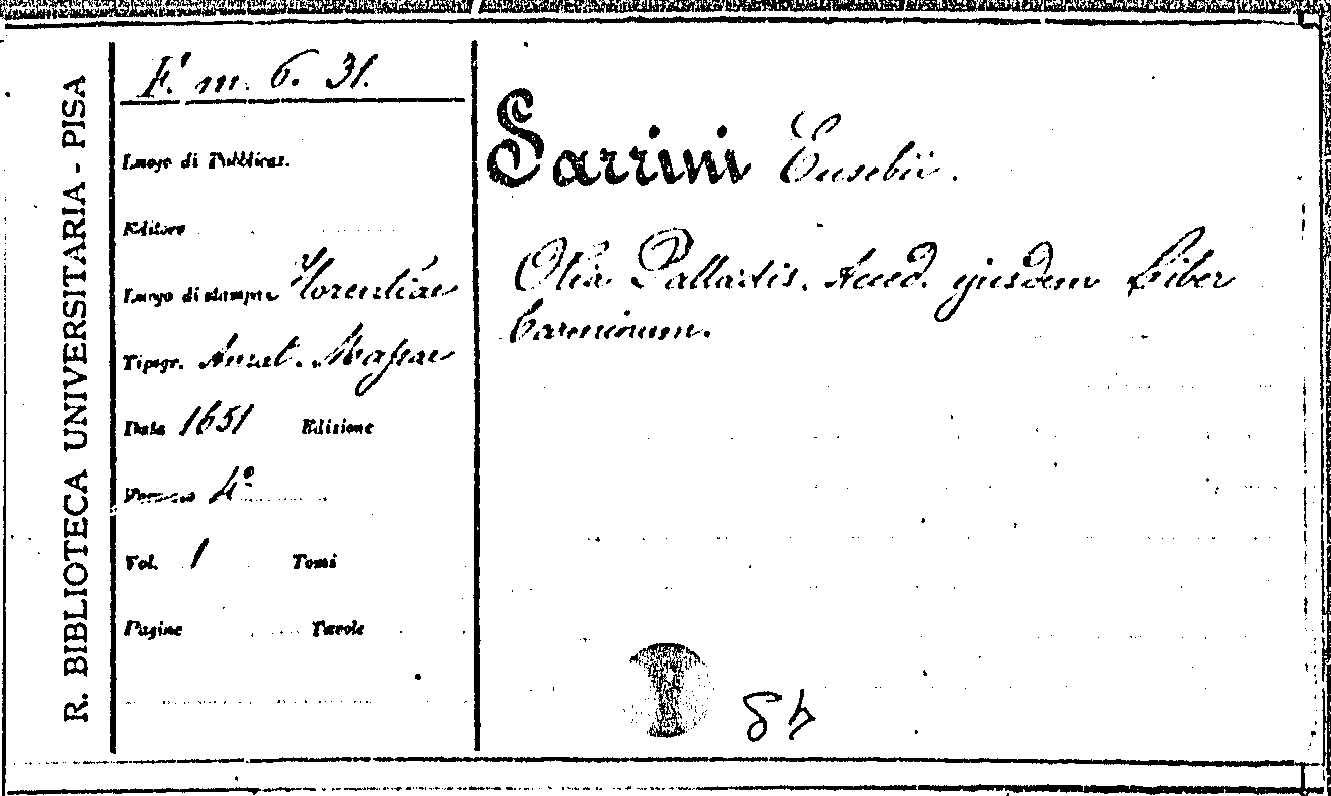 R. BIBLIOTECA UNIVERSITARIA - PISA
F. m. 6. 31.
Luogo di Pubblicaz.
Editore
Luogo di stampa Florentiae
Tipogr. Amat. Massae
Data 1651 Edizione
Formato 4º
Vol. 1 Tomi
Pagine Tavole
Sarrini Eusebii.
Otia Palladis. Acced. ejusdem Liber
Carminum.